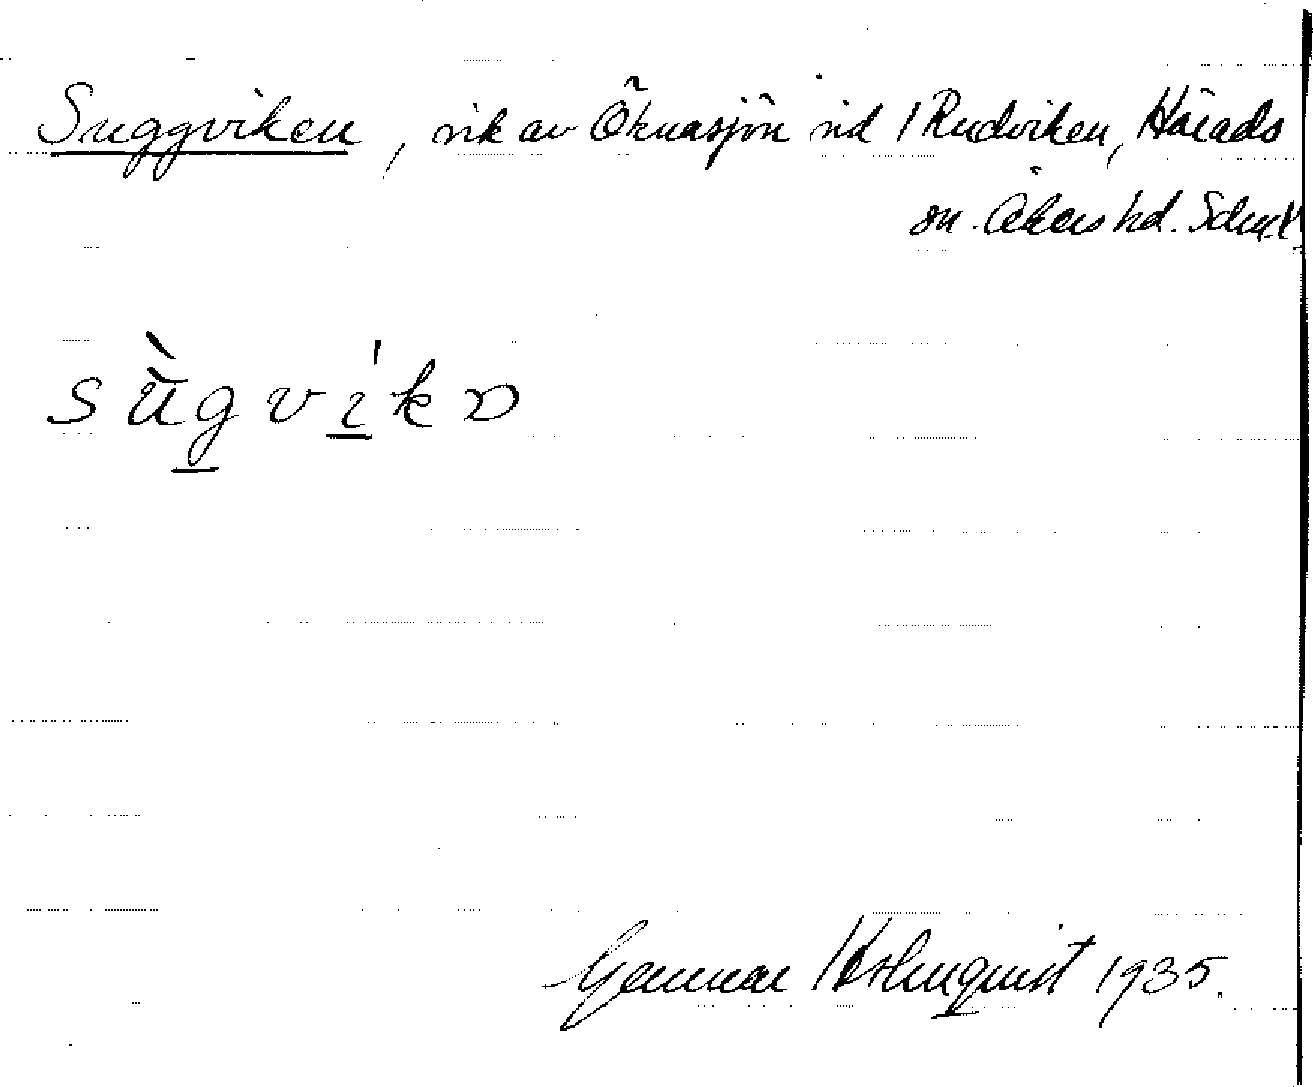 Suggviken, vik av Öknasjön vid Rudviken, Härads
sn. Åkers hd. Sdml.
sùgvíkɒ
Gunnar Holmquist 1935.